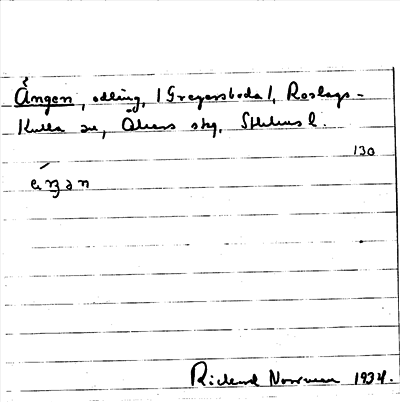 Ängen, odling, (Gregersboda), Roslags-
Kulla sn, Åkers skg, Sthlms l.
130
Richard Norrman 1934.